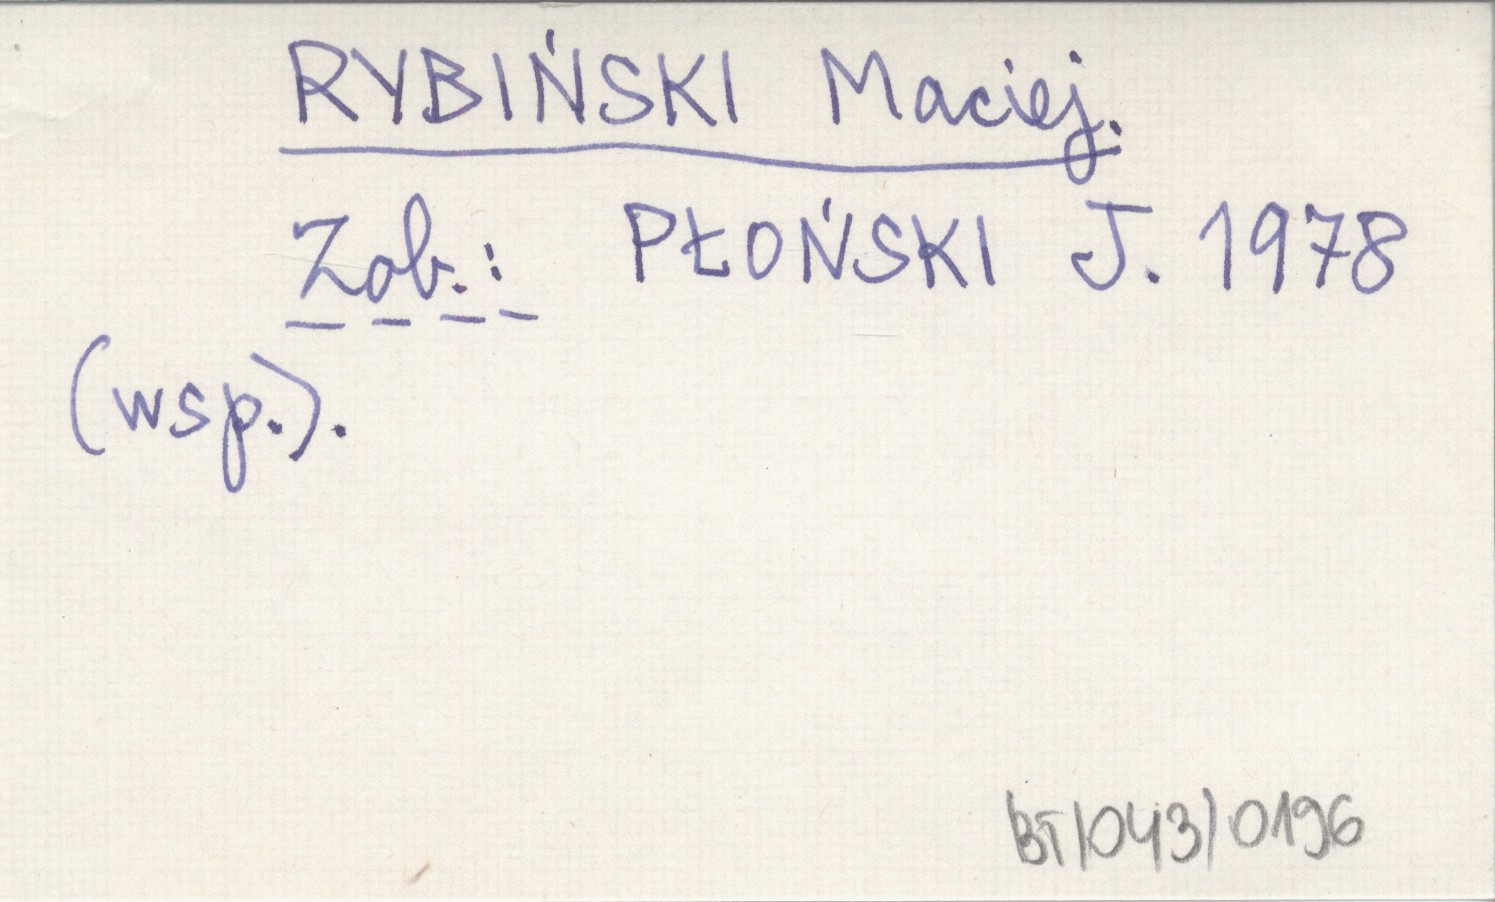 RYBIŃSKI Maciej.
Zob.: PŁOŃSKI J. 1978
(wsp.).
BT/043/0196